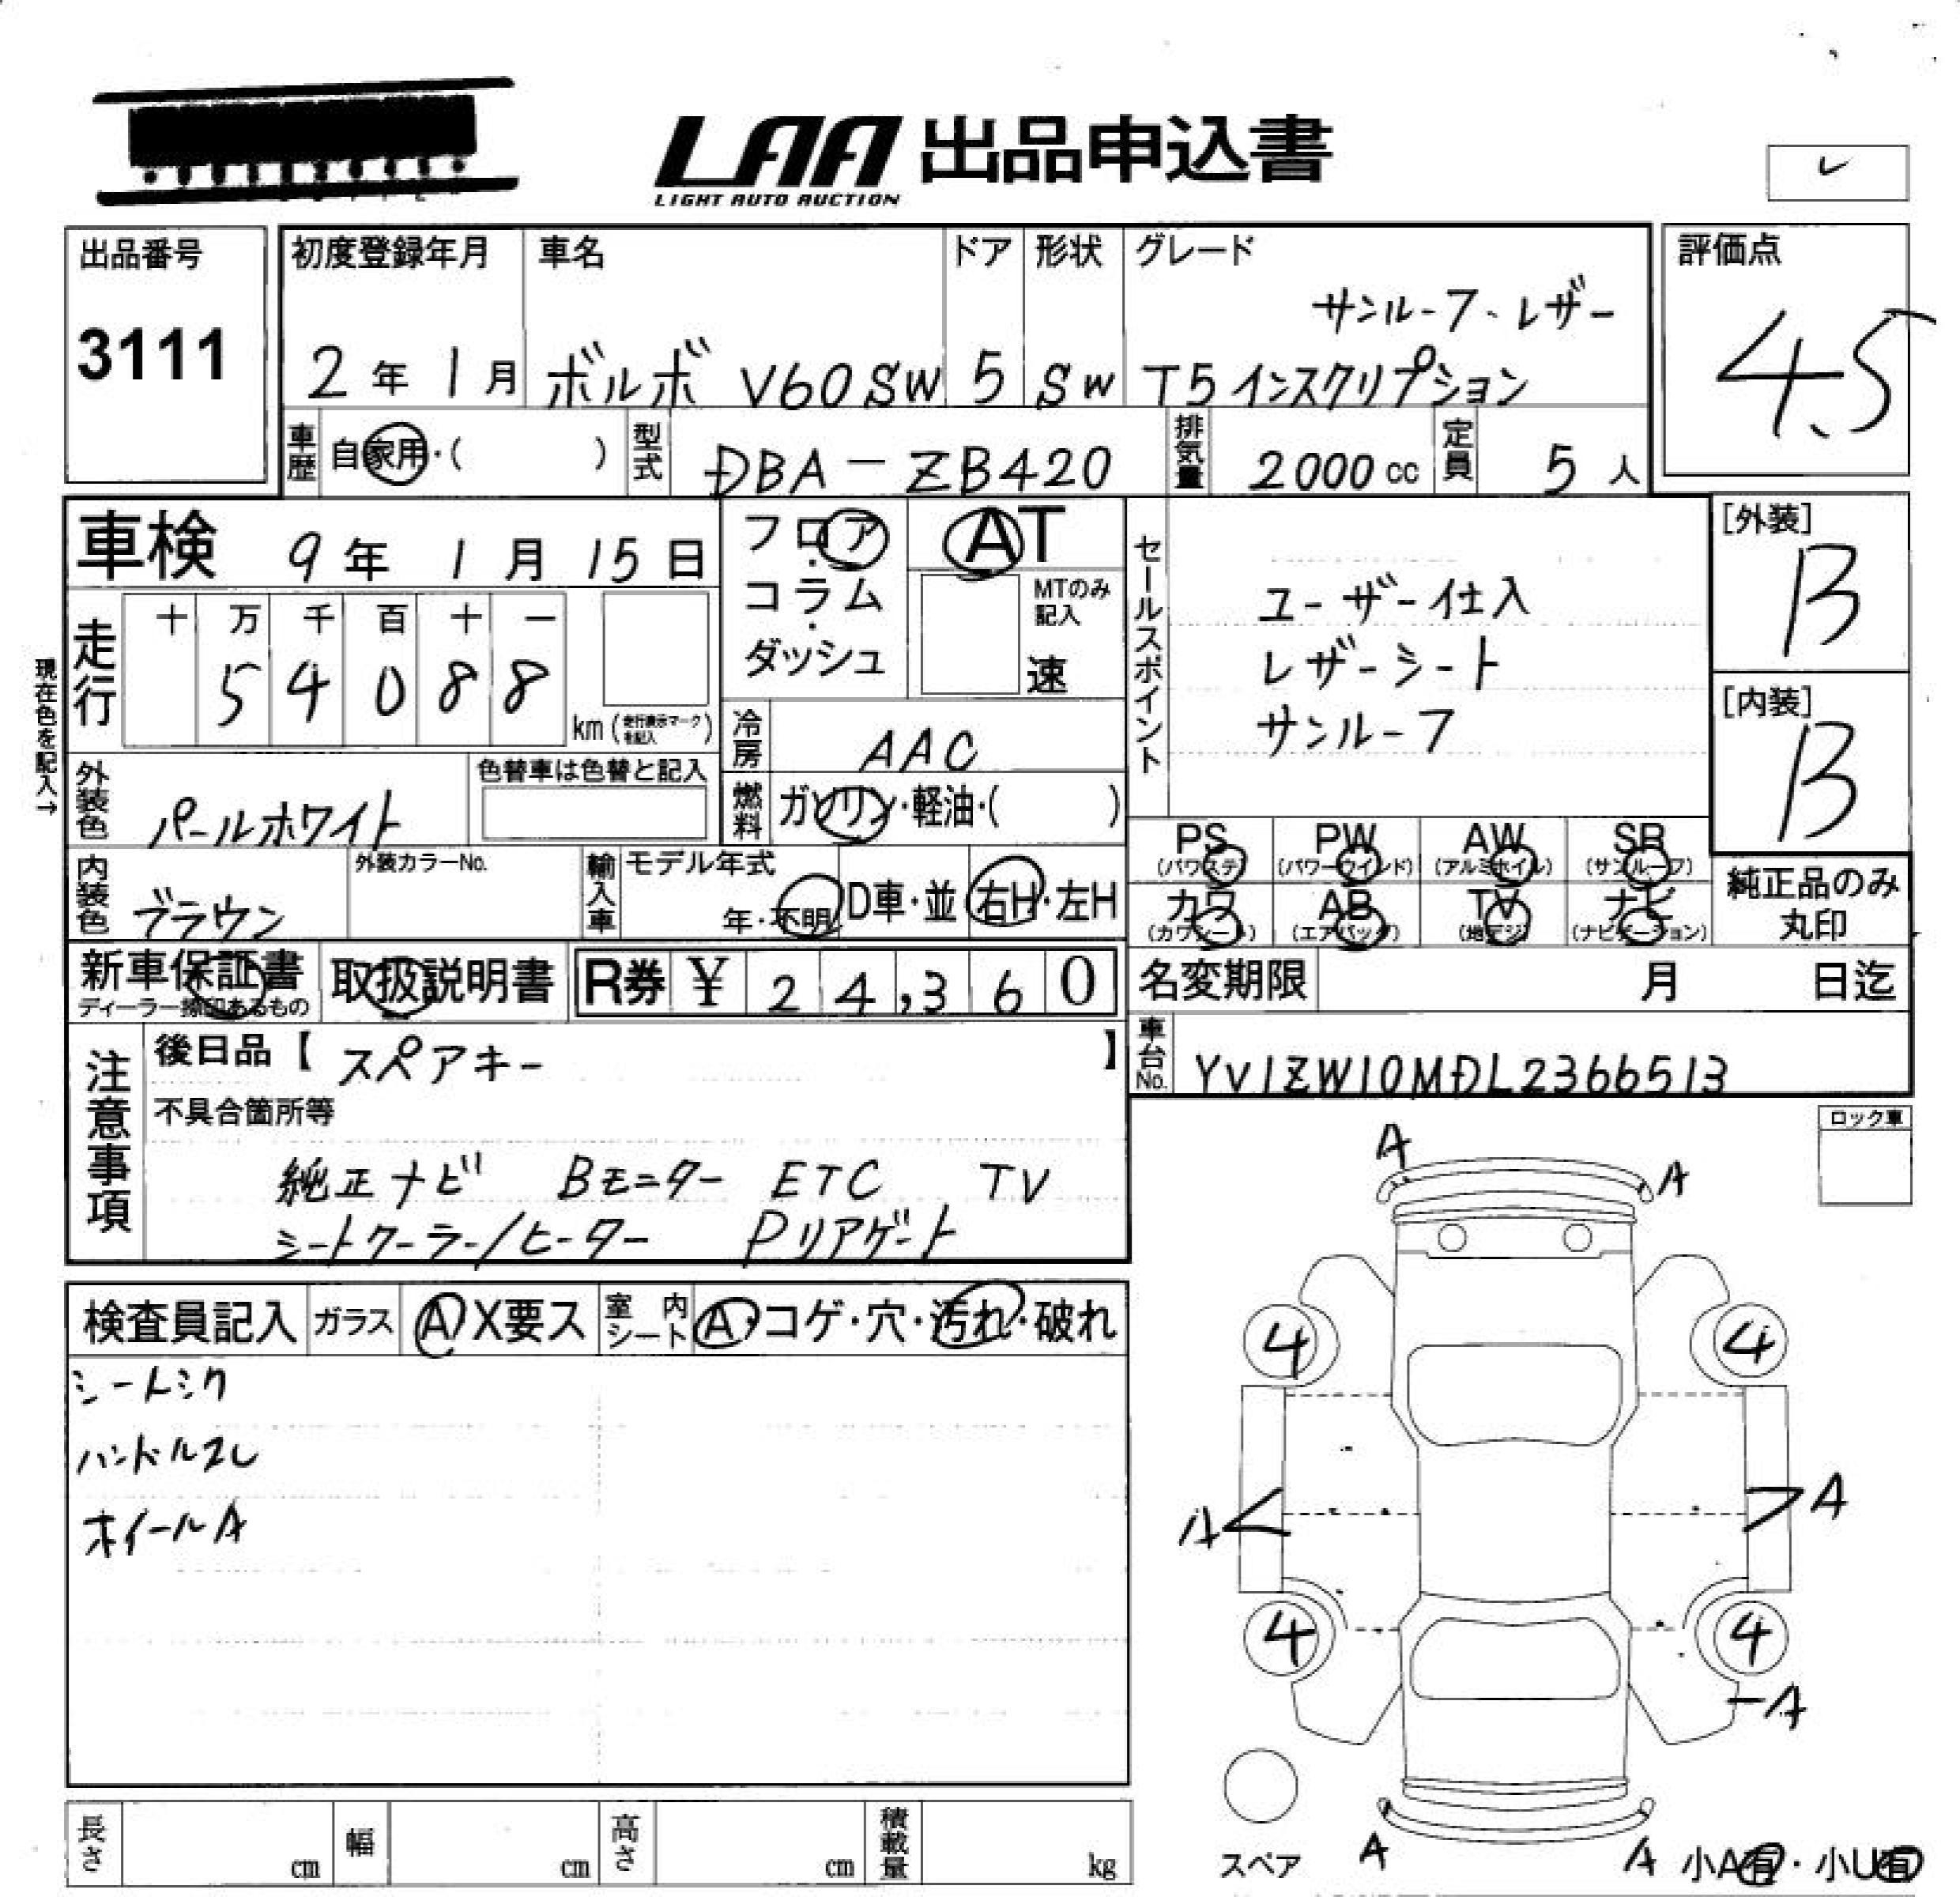 LAA 出品申込書
LIGHT AUTO AUCTION
出品番号
3111
初度登録年月
2年 1月
車名
ボルボ V60SW
ドア
5
形状
SW
グレード
サンルーフ、レザー
T5インスクリプション
評価点
4.5
車歴 自家用・( )
型式 DBA-ZB420
排気量 2000cc
定員 5人
車検 9年 1月 15日
現在色を記入→
走行
十 万 千 百 十 一
5 4 0 8 8
km(走行表示マークを記入)
フロア・コラム・ダッシュ
AT
MTのみ記入
速
冷房 AAC
燃料 ガソリン・軽油・( )
外装色 パールホワイト
色替車は色替と記入
内装色 ブラウン
外装カラーNo.
輸入車 モデル年式
年・不明
D車・並
右H・左H
セールスポイント
ユーザー仕入
レザーシート
サンルーフ
[外装]
B
[内装]
B
PS (パワステ)
PW (パワーウインド)
AW (アルミホイル)
SR (サンルーフ)
カワ (カワシート)
AB (エアバッグ)
TV (地デジ)
ナビ (ナビゲーション)
純正品のみ丸印
新車保証書
ディーラー捺印あるもの
取扱説明書
R券 ¥ 24,360
名変期限 月 日迄
車台No. YV1ZW10MDL2366513
注意事項
後日品【スペアキー】
不具合箇所等
純正ナビ Bモニター ETC TV
シートクーラー/ヒーター Pリアゲート
ロック車
検査員記入
ガラス A X要ス
室内シート A・コゲ・穴・汚れ・破れ
シートシワ
ハンドルスレ
ホイールA
A
A
4
4
A
A
4
4
A
A
A
スペア
小A有・小U有
長さ cm
幅 cm
高さ cm
積載量 kg